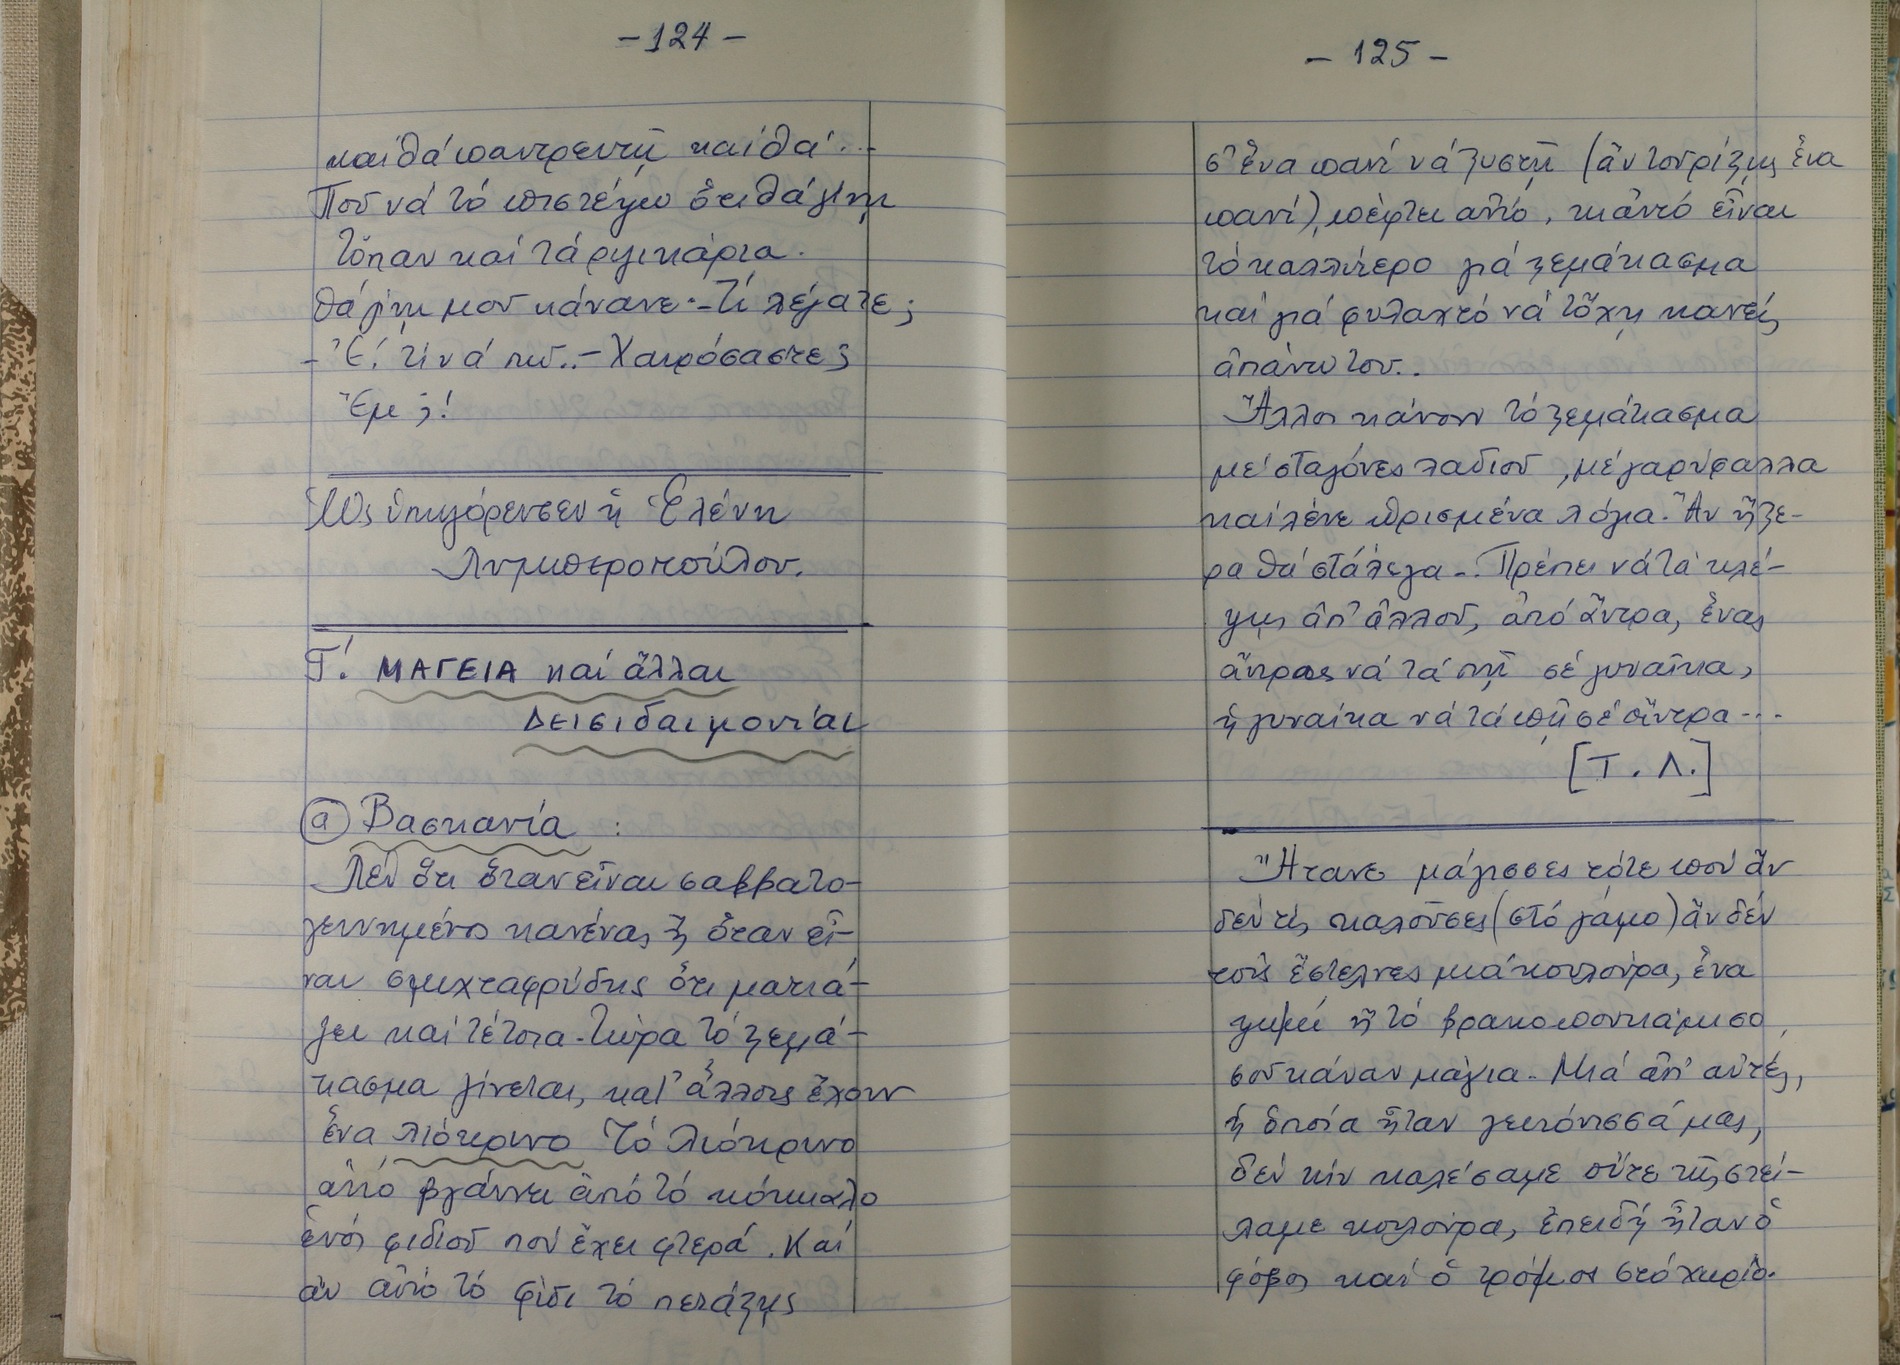 - 124 -
καί θά παντρευτῆ καί θά...
Ποῦ νά τό πιστέψω ὅτι θά γίνη
τὄπαν καί τά ρηνικάρια.
θά γίνη μου κάνανε.- Τί λέγατε;
- Ἔ. τί νά πῶ..- Χαιρόσαστε;
Ἔμ;!
Ὡς ὑπηγόρευσεν ἡ Ἑλένη
Λυμπεροπούλου.
Γ΄. ΜΑΓΕΙΑ καί ἄλλαι
Δεισιδαιμονίαι
α) Βασκανία :
Λέν ὅτι ὅταν εἶναι σαββατο-
γεννημένος κανένας ἤ ὅταν εἶ-
ναι σμιχταφρύδης ὅτι ματιά-
ζει καί τέτοια. Τώρα τό ξεμά-
τιασμα γίνεται, κατ' ἄλλους ἔχουν
ἕνα λιόκρινο Τό λιόκρινο
αὐτό βγάννει ἀπό τό κόκκαλο
ἑνός φιδιοῦ πού ἔχει φτερά. Καί
ἄν αὐτό τό φίδι τό πετάξης
- 125 -
σ' ἕνα πανί νά ξυστῆ (ἄν τοῦ ρίξης ἕνα
πανί), πέφτει αὐτό, κι αὐτό εἶναι
τό καλλίτερο γιά ξεμάτιασμα
καί γιά φυλαχτό νά τὄχη κανείς
ἀπάνω του..
Ἄλλοι κάνουν τό ξεμάτιασμα
μέ σταγόνες λαδιοῦ, μέ γαρύφαλλα
καί λένε ὡρισμένα λόγια. Ἄν ἤξε-
ρα θά στἄλεγα.. Πρέπει νά τά κλέ-
ψης ἀπ' ἀλλοῦ, ἀπό ἄντρα, ἕνας
ἄντρας νά τά πῆ σέ γυναῖκα,
ἡ γυναίκα νά τά πῆ σέ ἄντρα...
[Τ. Λ.]
Ἤτανε μάγισσες τότε πού ἄν
δέν τίς καλοῦσες (στό γάμο) ἄν δέν
τούς ἔστελνες μιά κουλούρα, ἕνα
ψωμί ἤ τό βρακοπουκάμισο,
σοῦ κάναν μάγια. Μιά ἀπ' αὐτές,
ἡ ὁποία ἦταν γειτόνισσά μας,
δέν τήν καλέσαμε οὔτε τῆς στεί-
λαμε κουλούρα, ἐπειδή ἦταν ὁ
φόβος καί ὁ τρόμος στό χωριό.